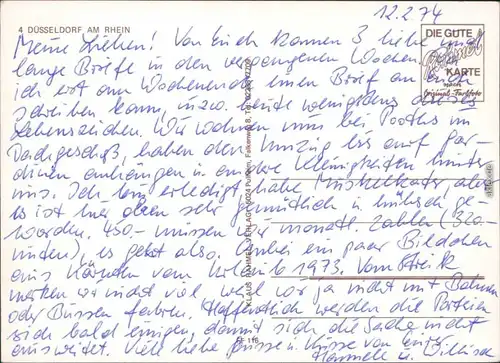 12.2.74
4 DÜSSELDORF AM RHEIN
DIE GUTE
Rahmel
KARTE
nach
Original-Farbfoto
Meine Lieben! Von Euch kamen 3 liebe und
lange Briefe in den vergangenen Wochen.
ich erst am Wochenende einen Brief an Euch
schreiben kann, inzw. heute wenigstens dieses
Lebenszeichen. Wir wohnen nun bei Pooths im
Dachgeschoß, haben den Umzug bis auf Gar-
dinen anhängen u. andere Kleinigkeiten hinter
uns. Ich bin erledigt, habe Muskelkater, aber
es ist hier oben sehr gemütlich u. hübsch ge-
worden. 450.- müssen wir monatl. zahlen (320.-
), es geht also. Anbei ein paar Bildchen
aus vom Urlaub 1973. Vom Streik
merken wir nicht viel, weil wir ja nicht mit Bahnen
oder Bussen fahren. Hoffentlich werden die Parteien
sich bald einigen, damit sich die Sache nicht
ausweitet. Viele liebe Grüsse u. Küsse von
Hannele u.
KLAUS RAHMEL VERLAG, 5024 Pulheim, Falkenweg 8, Tel.